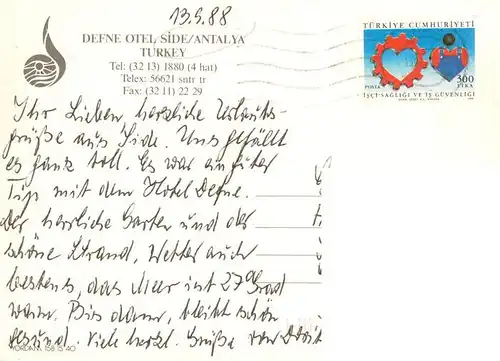 13.9.88
DEFNE OTEL SİDE/ANTALYA
TURKEY
Tel: (32 13) 1880 (4 hat)
Telex: 56621 sntr tr
Fax: (32 11) 22 29
TÜRKİYE CUMHURİYETİ
POSTA
300
LİRA
İŞÇİ SAĞLIĞI VE İŞ GÜVENLİĞİ
Ihr Lieben, herzliche Urlaubs-
grüße aus Side. Uns gefällt
es ganz toll. Es war ein guter
Tip mit dem Hotel Defne.
Der herrliche Garten und der
schöne Strand, Wetter auch
bestens, das Meer ist 27 Grad
warm. Bis dann, bleibt schön
gesund. Viele herzl. Grüße von
158.15.40